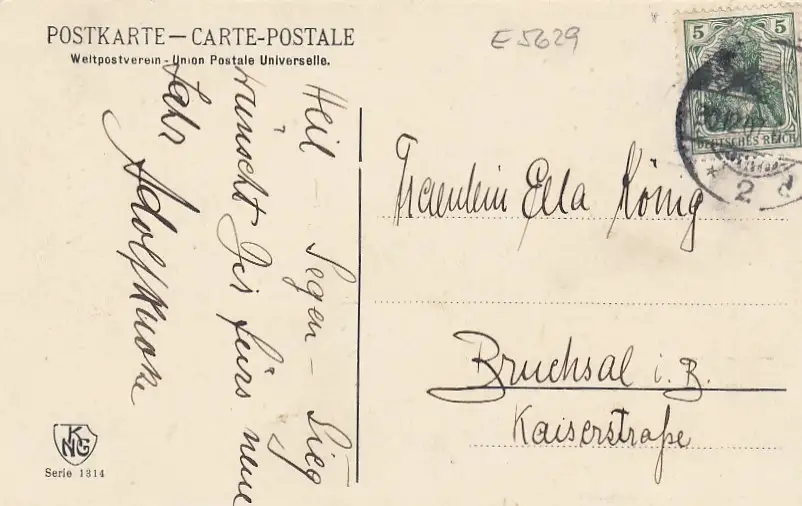 POSTKARTE — CARTE-POSTALE
Weltpostverein - Union Postale Universelle.
E 5629
5 5
DEUTSCHES REICH
* 2 d
Heil – Segen – Sieg
wünscht Dir fürs neue
Jahr Adolf
Fraeulein Ella König
Bruchsal i. B.
Kaiserstraße
KNG
Serie 1314